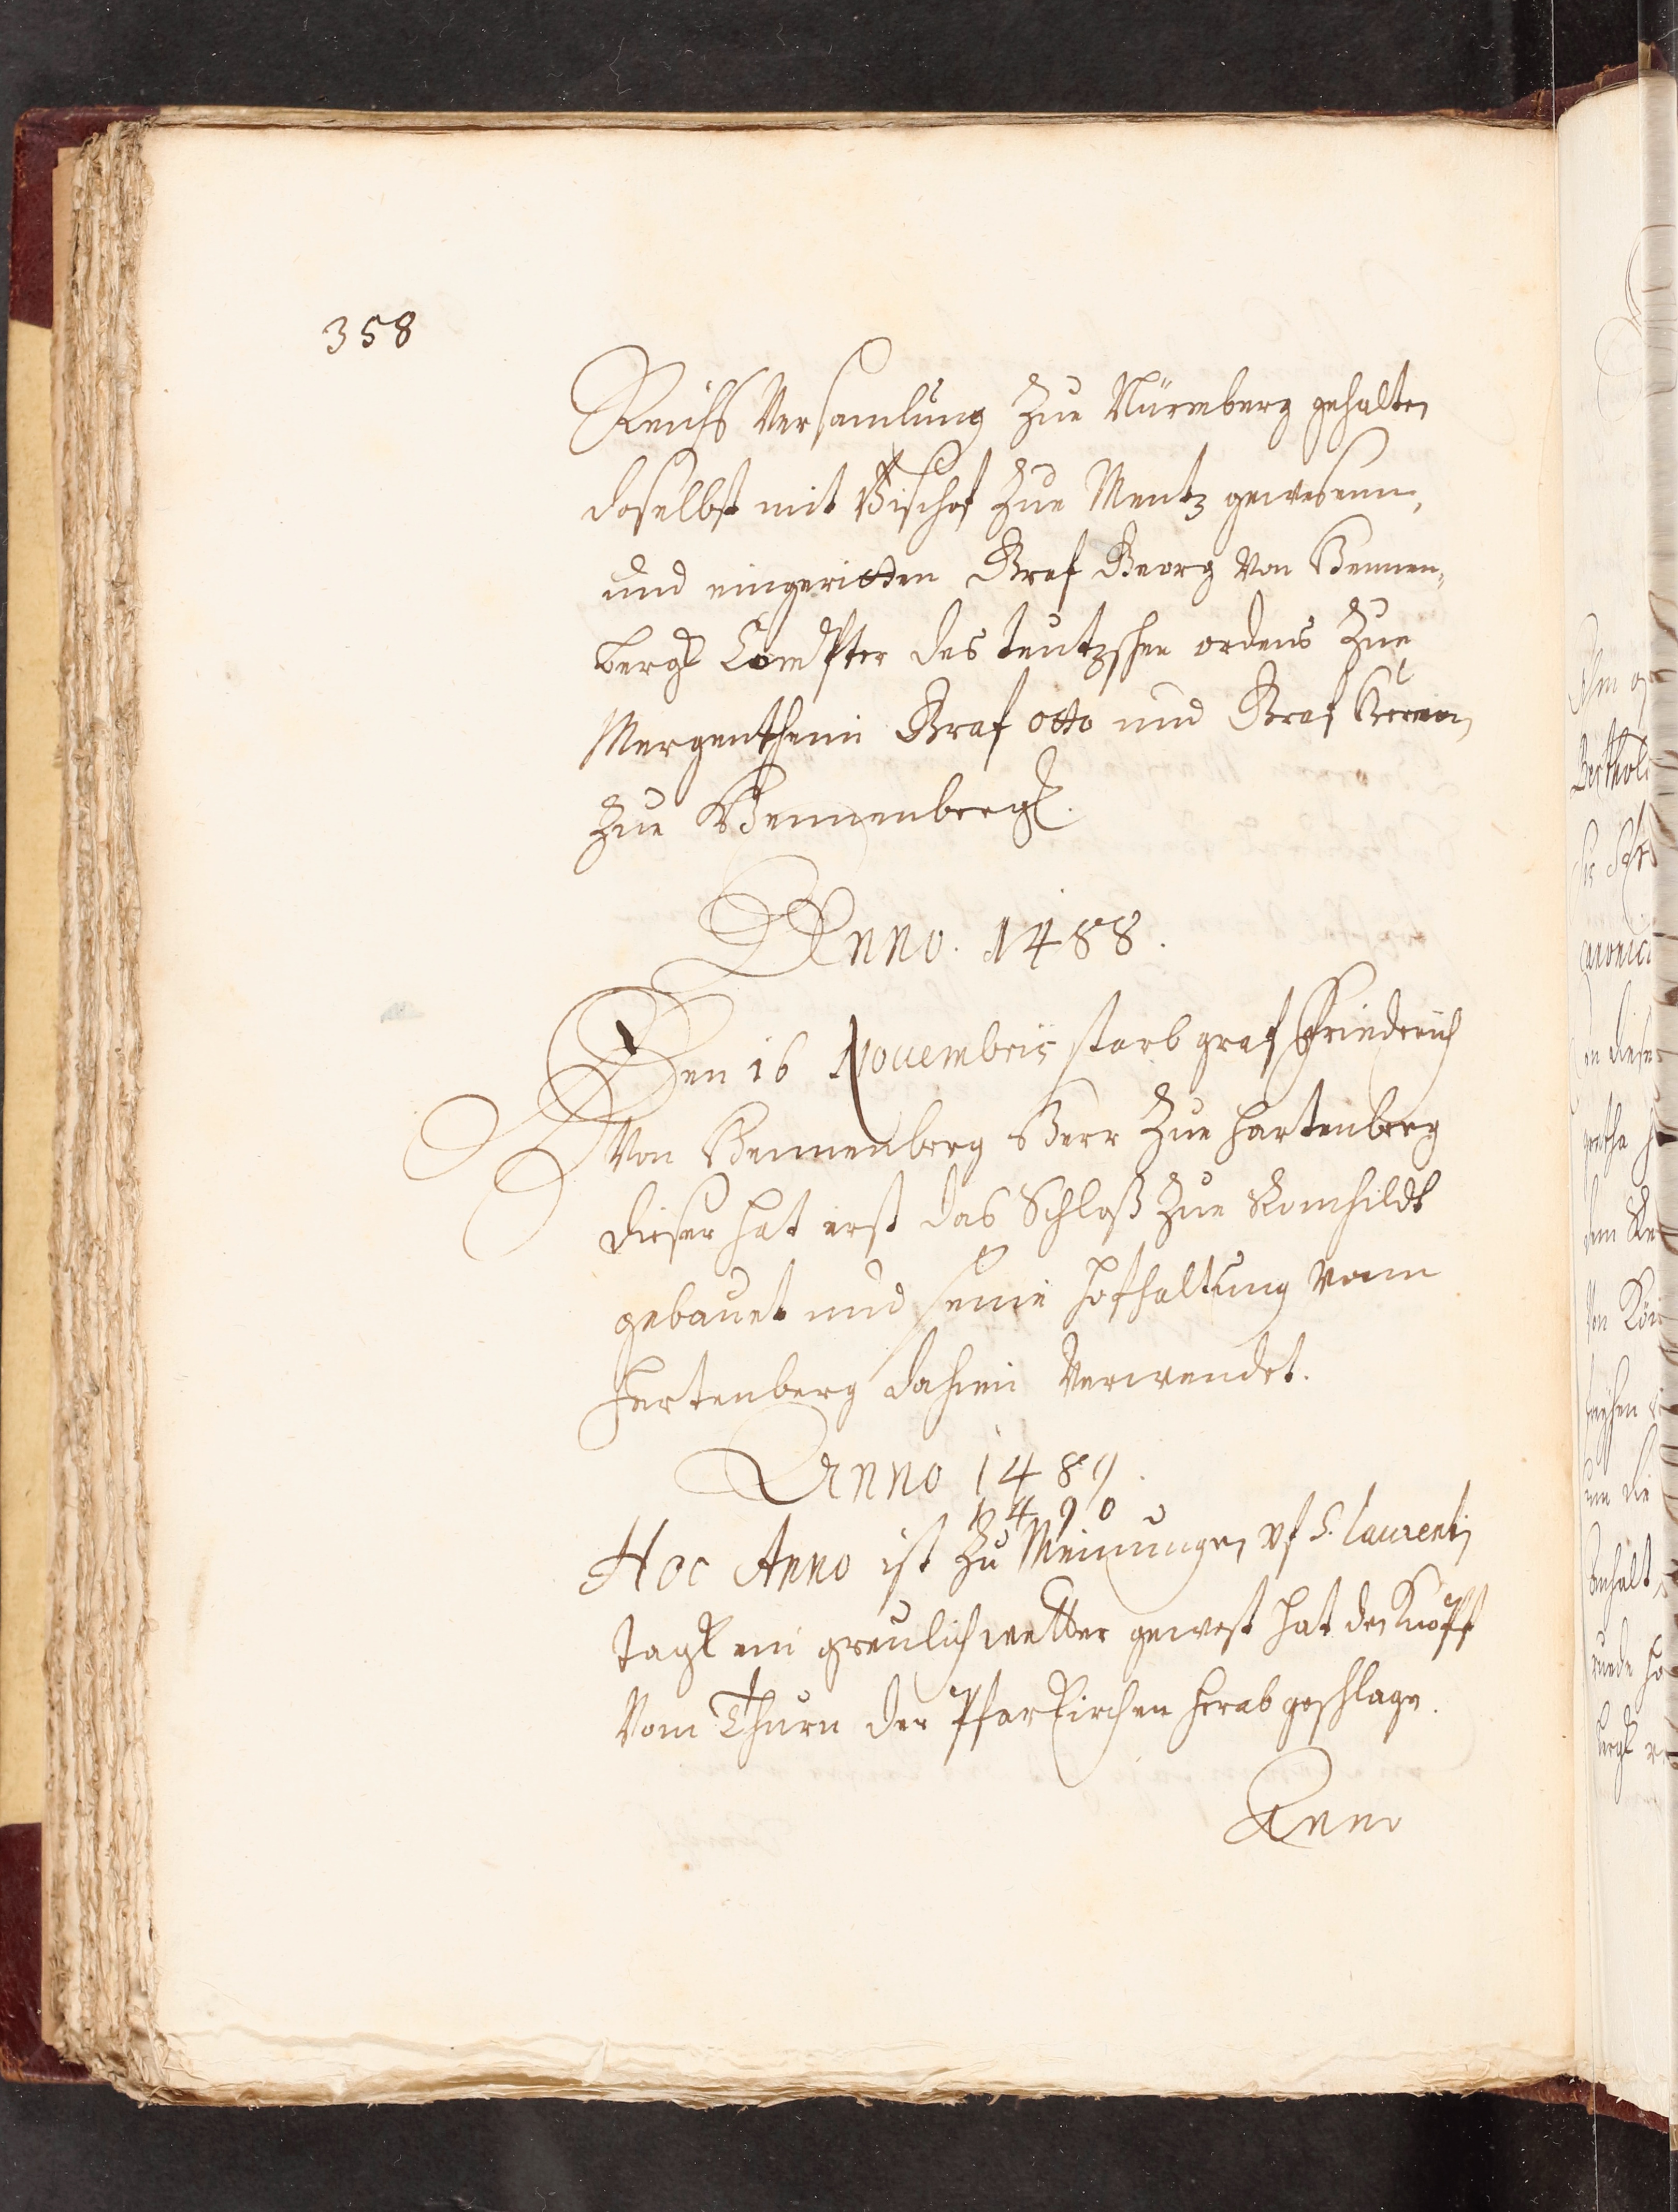 358
Reichs Versamlung Zue Nürmberg gehalten
doselbst mit Bischof Zue Mentz gewesenn,
und eingeritten Graf Georg Von Hennen,
bergk Compter des teutzschen ordens Zue
Mergentheim Graf otto und Graf Herman
Zue Hennenbergk.
Anno. 1488.
Den 16 Nouembris starb graf Friedreich
Von Hennenberg Herr Zue Hartenberg
dieser hat erst das Schloß Zue Romhildt
gebauet und seine Hofhaltung vom
Hartenberg dahein Verwendet.
Anno 1489.
1490
Hoc Anno ist Zu Meinungen vf S. Laurentj
tagk ein greulich wetter gewest hat den Knöpff
Vom Thurn der Pfarkirchen herab geschlagen.
Anno